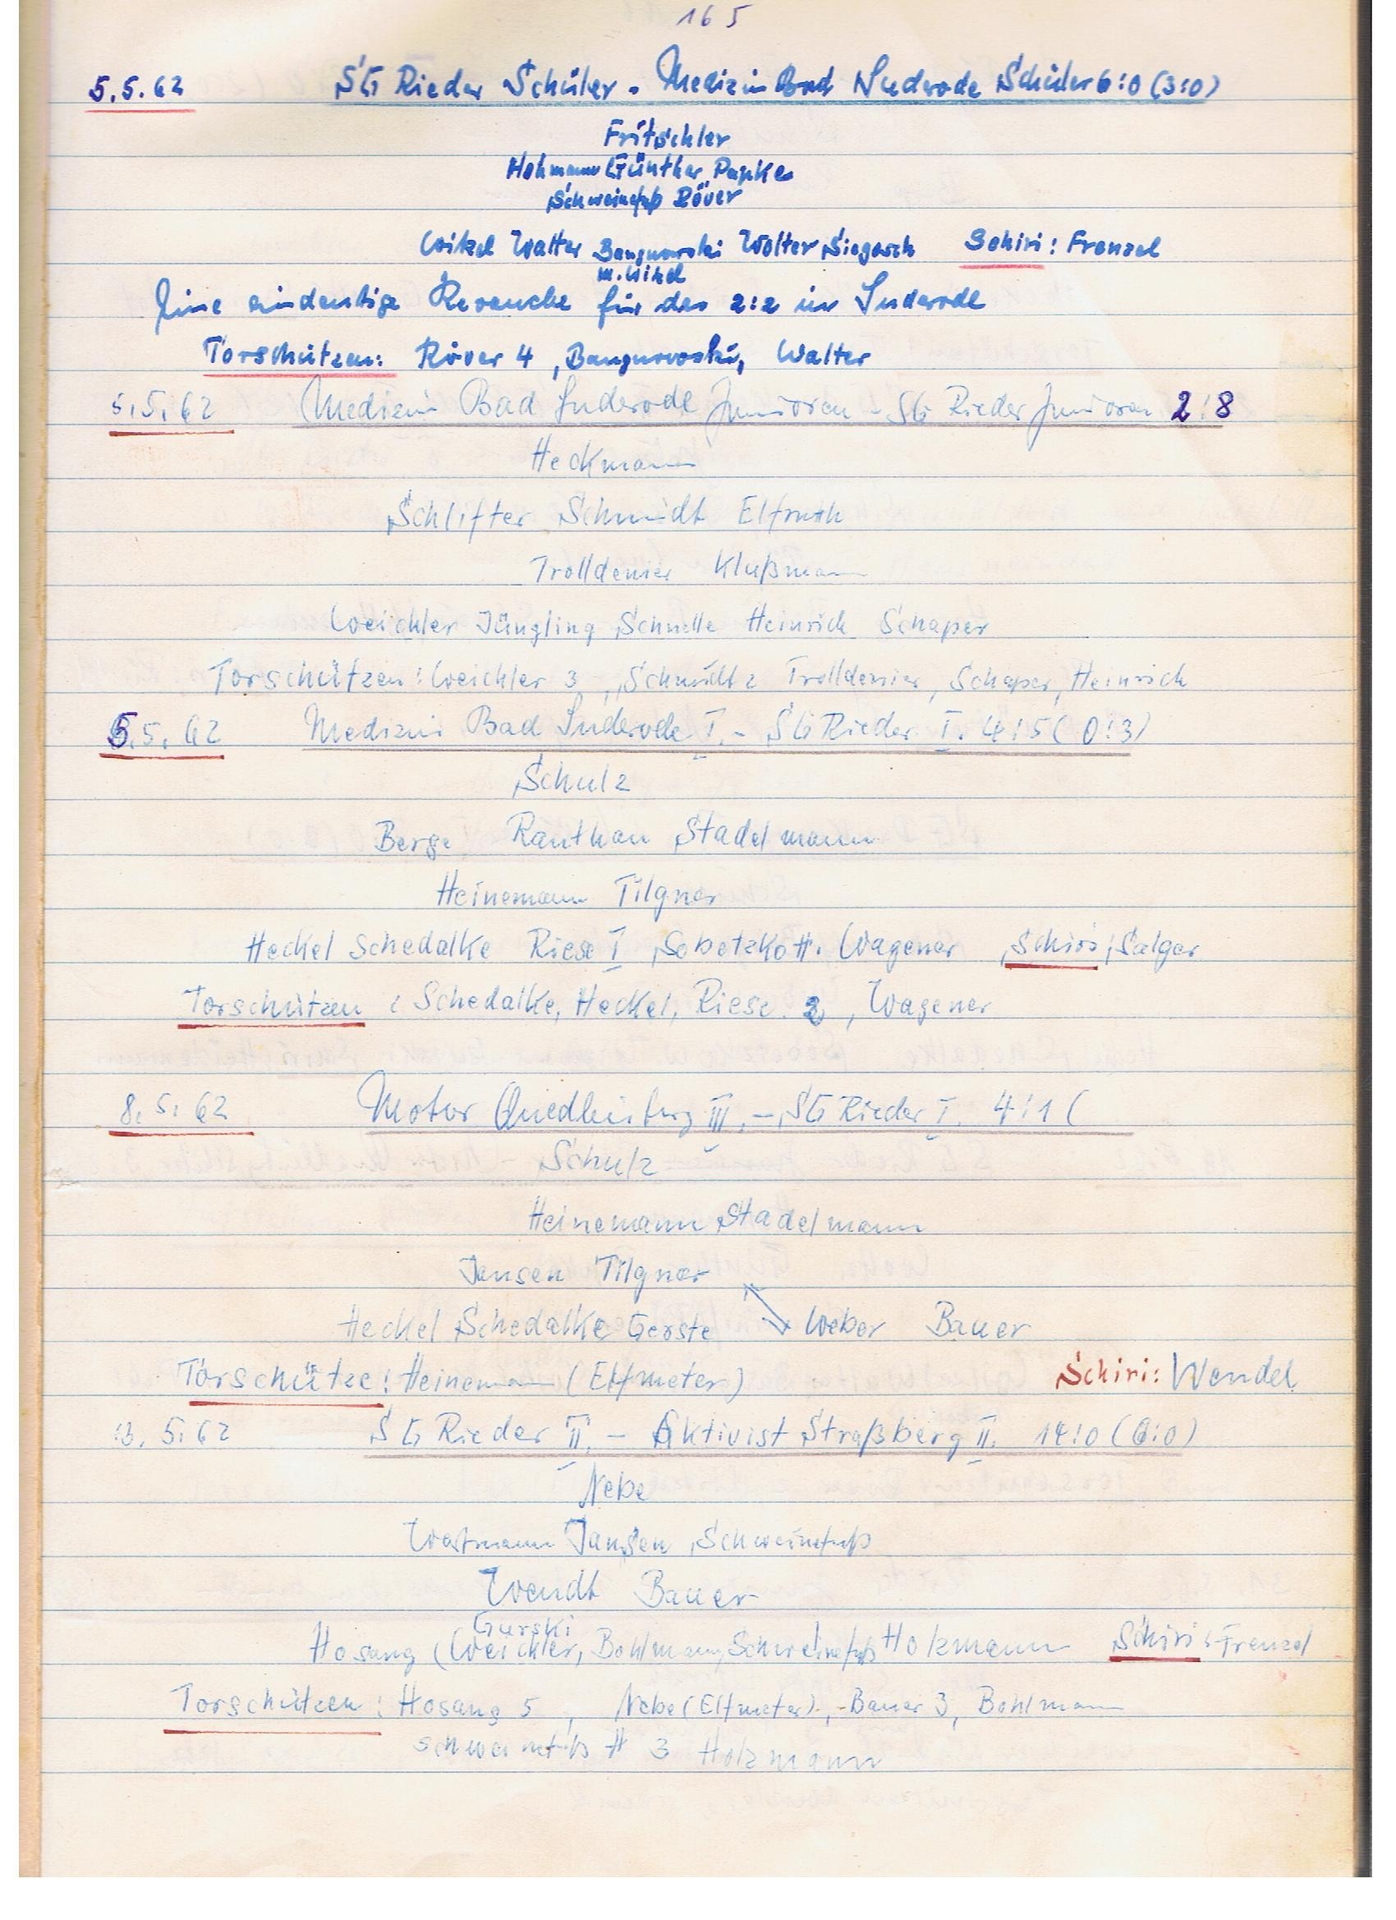 165
5.5.62 SG Rieder Schüler - Medizin Bad Suderode Schüler 6:0 (3:0)
Fritschler
Hohmann Günther Papke
Schweinefuß Röver
Wikel Walter Bangurowski Wolter Siegasch Schiri: Frenzel
Eine eindeutige Revanche für das 2:2 in Suderode
Torschützen: Röver 4, Bangurowski, Walter
5.5.62 Medizin Bad Suderode Junioren - SG Rieder Junioren 2:8
Heckmann
Schlifter Schmidt Elfruth
Trolldenier Klußmann
Weichler Jüngling Schnelle Heinrich Schaper
Torschützen: Weichler 3, Schmidt 2 Trolldenier, Schaper, Heinrich
5.5.62 Medizin Bad Suderode I. - SG Rieder I. 4:5 (0:3)
Schulz
Berge Ranthan Stadelmann
Heinemann Tilgner
Heckel Schedalke Riese I Sobetzko H. Wagener Schiri: Salger
Torschützen: Schedalke, Heckel, Riese 2, Wagener
8.5.62 Motor Quedlinburg III. - SG Rieder I. 4:1 (
Schulz
Heinemann Stadelmann
Jansen Tilgner
Heckel Schedalke Gerste Weber Bauer
Torschütze: Heinemann (Elfmeter) Schiri: Wendel
13.5.62 SG Rieder II. - Aktivist Straßberg II. 14:0 (6:0)
Nebe
Wostmann Jansen Schweinefuß
Wendt Bauer
Gurski
Hosang (Weichler, Bohlmann, Schweinefuß Holzmann Schiri: Frenzel
Torschützen: Hosang 5, Nebe (Elfmeter), -Bauer 3, Bohlmann
Schweinefuß H 3 Holzmann